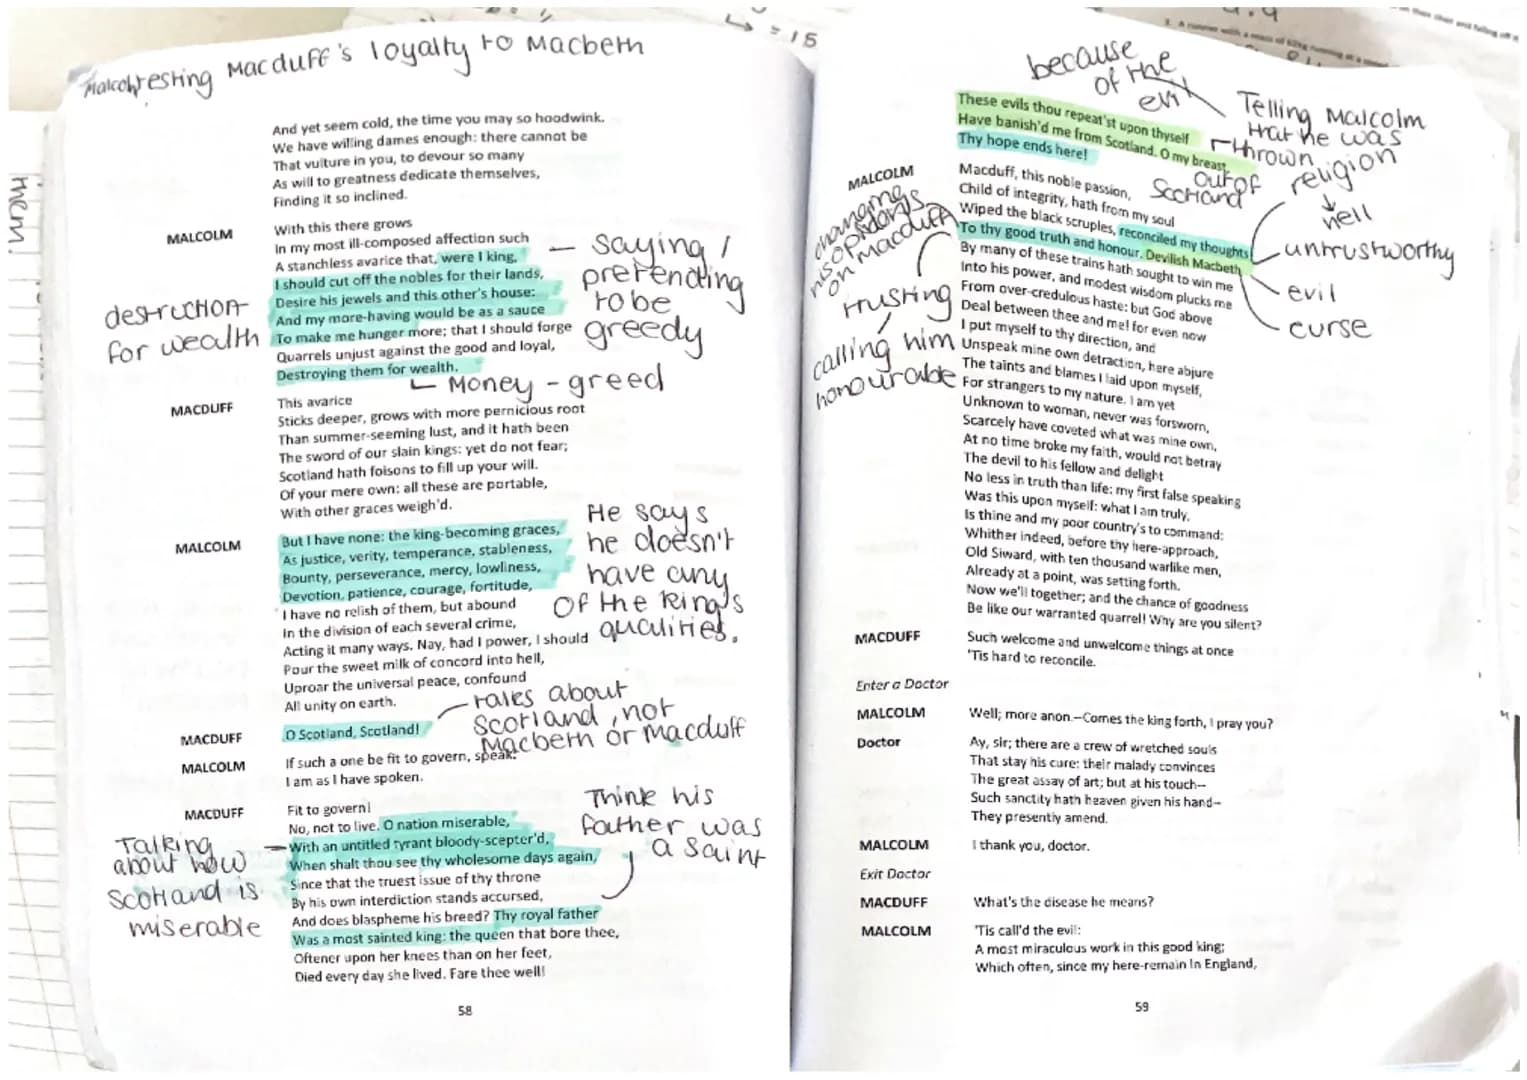 Malcolm testing Macduff's loyalty to Macbeth
And yet seem cold, the time you may so hoodwink.
We have willing dames enough: there cannot be
That vulture in you, to devour so many
As will to greatness dedicate themselves,
Finding it so inclined.
MALCOLM
With this there grows
In my most ill-composed affection such
A stanchless avarice that, were I king,
I should cut off the nobles for their lands,
Desire his jewels and this other's house:
And my more-having would be as a sauce
To make me hunger more; that I should forge
Quarrels unjust against the good and loyal,
Destroying them for wealth.
saying /
pretending
to be
greedy
destruction
for wealth
Money - greed
MACDUFF
This avarice
Sticks deeper, grows with more pernicious root
Than summer-seeming lust, and it hath been
The sword of our slain kings: yet do not fear;
Scotland hath foisons to fill up your will.
Of your mere own: all these are portable,
With other graces weigh'd.
MALCOLM
But I have none: the king-becoming graces,
As justice, verity, temperance, stableness,
Bounty, perseverance, mercy, lowliness,
Devotion, patience, courage, fortitude,
I have no relish of them, but abound
In the division of each several crime,
Acting it many ways. Nay, had I power, I should
Pour the sweet milk of concord into hell,
Uproar the universal peace, confound
All unity on earth.
He says
he doesn't
have any
of the King's
qualities.
MACDUFF
O Scotland, Scotland!
talks about
Scotland, not
Macbeth or macduff
MALCOLM
If such a one be fit to govern, speak:
I am as I have spoken.
MACDUFF
Fit to govern!
No, not to live. O nation miserable,
With an untitled tyrant bloody-scepter'd,
When shalt thou see thy wholesome days again,
Since that the truest issue of thy throne
By his own interdiction stands accursed,
And does blaspheme his breed? Thy royal father
Was a most sainted king: the queen that bore thee,
Oftener upon her knees than on her feet,
Died every day she lived. Fare thee well!
Think his
father was
a saint
Talking
about how
Scotland is
miserable
58
them.
= 15
because
of the
evil
These evils thou repeat'st upon thyself
Have banish'd me from Scotland. O my breast,
Thy hope ends here!
Telling Malcolm
that he was
thrown
out of
Scotland
religion
hell
untrustworthy
evil
curse
MALCOLM
Macduff, this noble passion,
Child of integrity, hath from my soul
Wiped the black scruples, reconciled my thoughts
To thy good truth and honour. Devilish Macbeth
By many of these trains hath sought to win me
Into his power, and modest wisdom plucks me
From over-credulous haste: but God above
Deal between thee and me! for even now
I put myself to thy direction, and
Unspeak mine own detraction, here abjure
The taints and blames I laid upon myself,
For strangers to my nature. I am yet
Unknown to woman, never was forsworn,
Scarcely have coveted what was mine own,
At no time broke my faith, would not betray
The devil to his fellow and delight
No less in truth than life: my first false speaking
Was this upon myself: what I am truly,
Is thine and my poor country's to command:
Whither indeed, before thy here-approach,
Old Siward, with ten thousand warlike men,
Already at a point, was setting forth.
Now we'll together; and the chance of goodness
Be like our warranted quarrel! Why are you silent?
changing
his opinions
on macduff
trusting
calling him
honourable
MACDUFF
Such welcome and unwelcome things at once
'Tis hard to reconcile.
Enter a Doctor
MALCOLM
Well; more anon.—Comes the king forth, I pray you?
Doctor
Ay, sir; there are a crew of wretched souls
That stay his cure: their malady convinces
The great assay of art; but at his touch--
Such sanctity hath heaven given his hand--
They presently amend.
MALCOLM
I thank you, doctor.
Exit Doctor
MACDUFF
What's the disease he means?
MALCOLM
'Tis call'd the evil:
A most miraculous work in this good king;
Which often, since my here-remain in England,
59